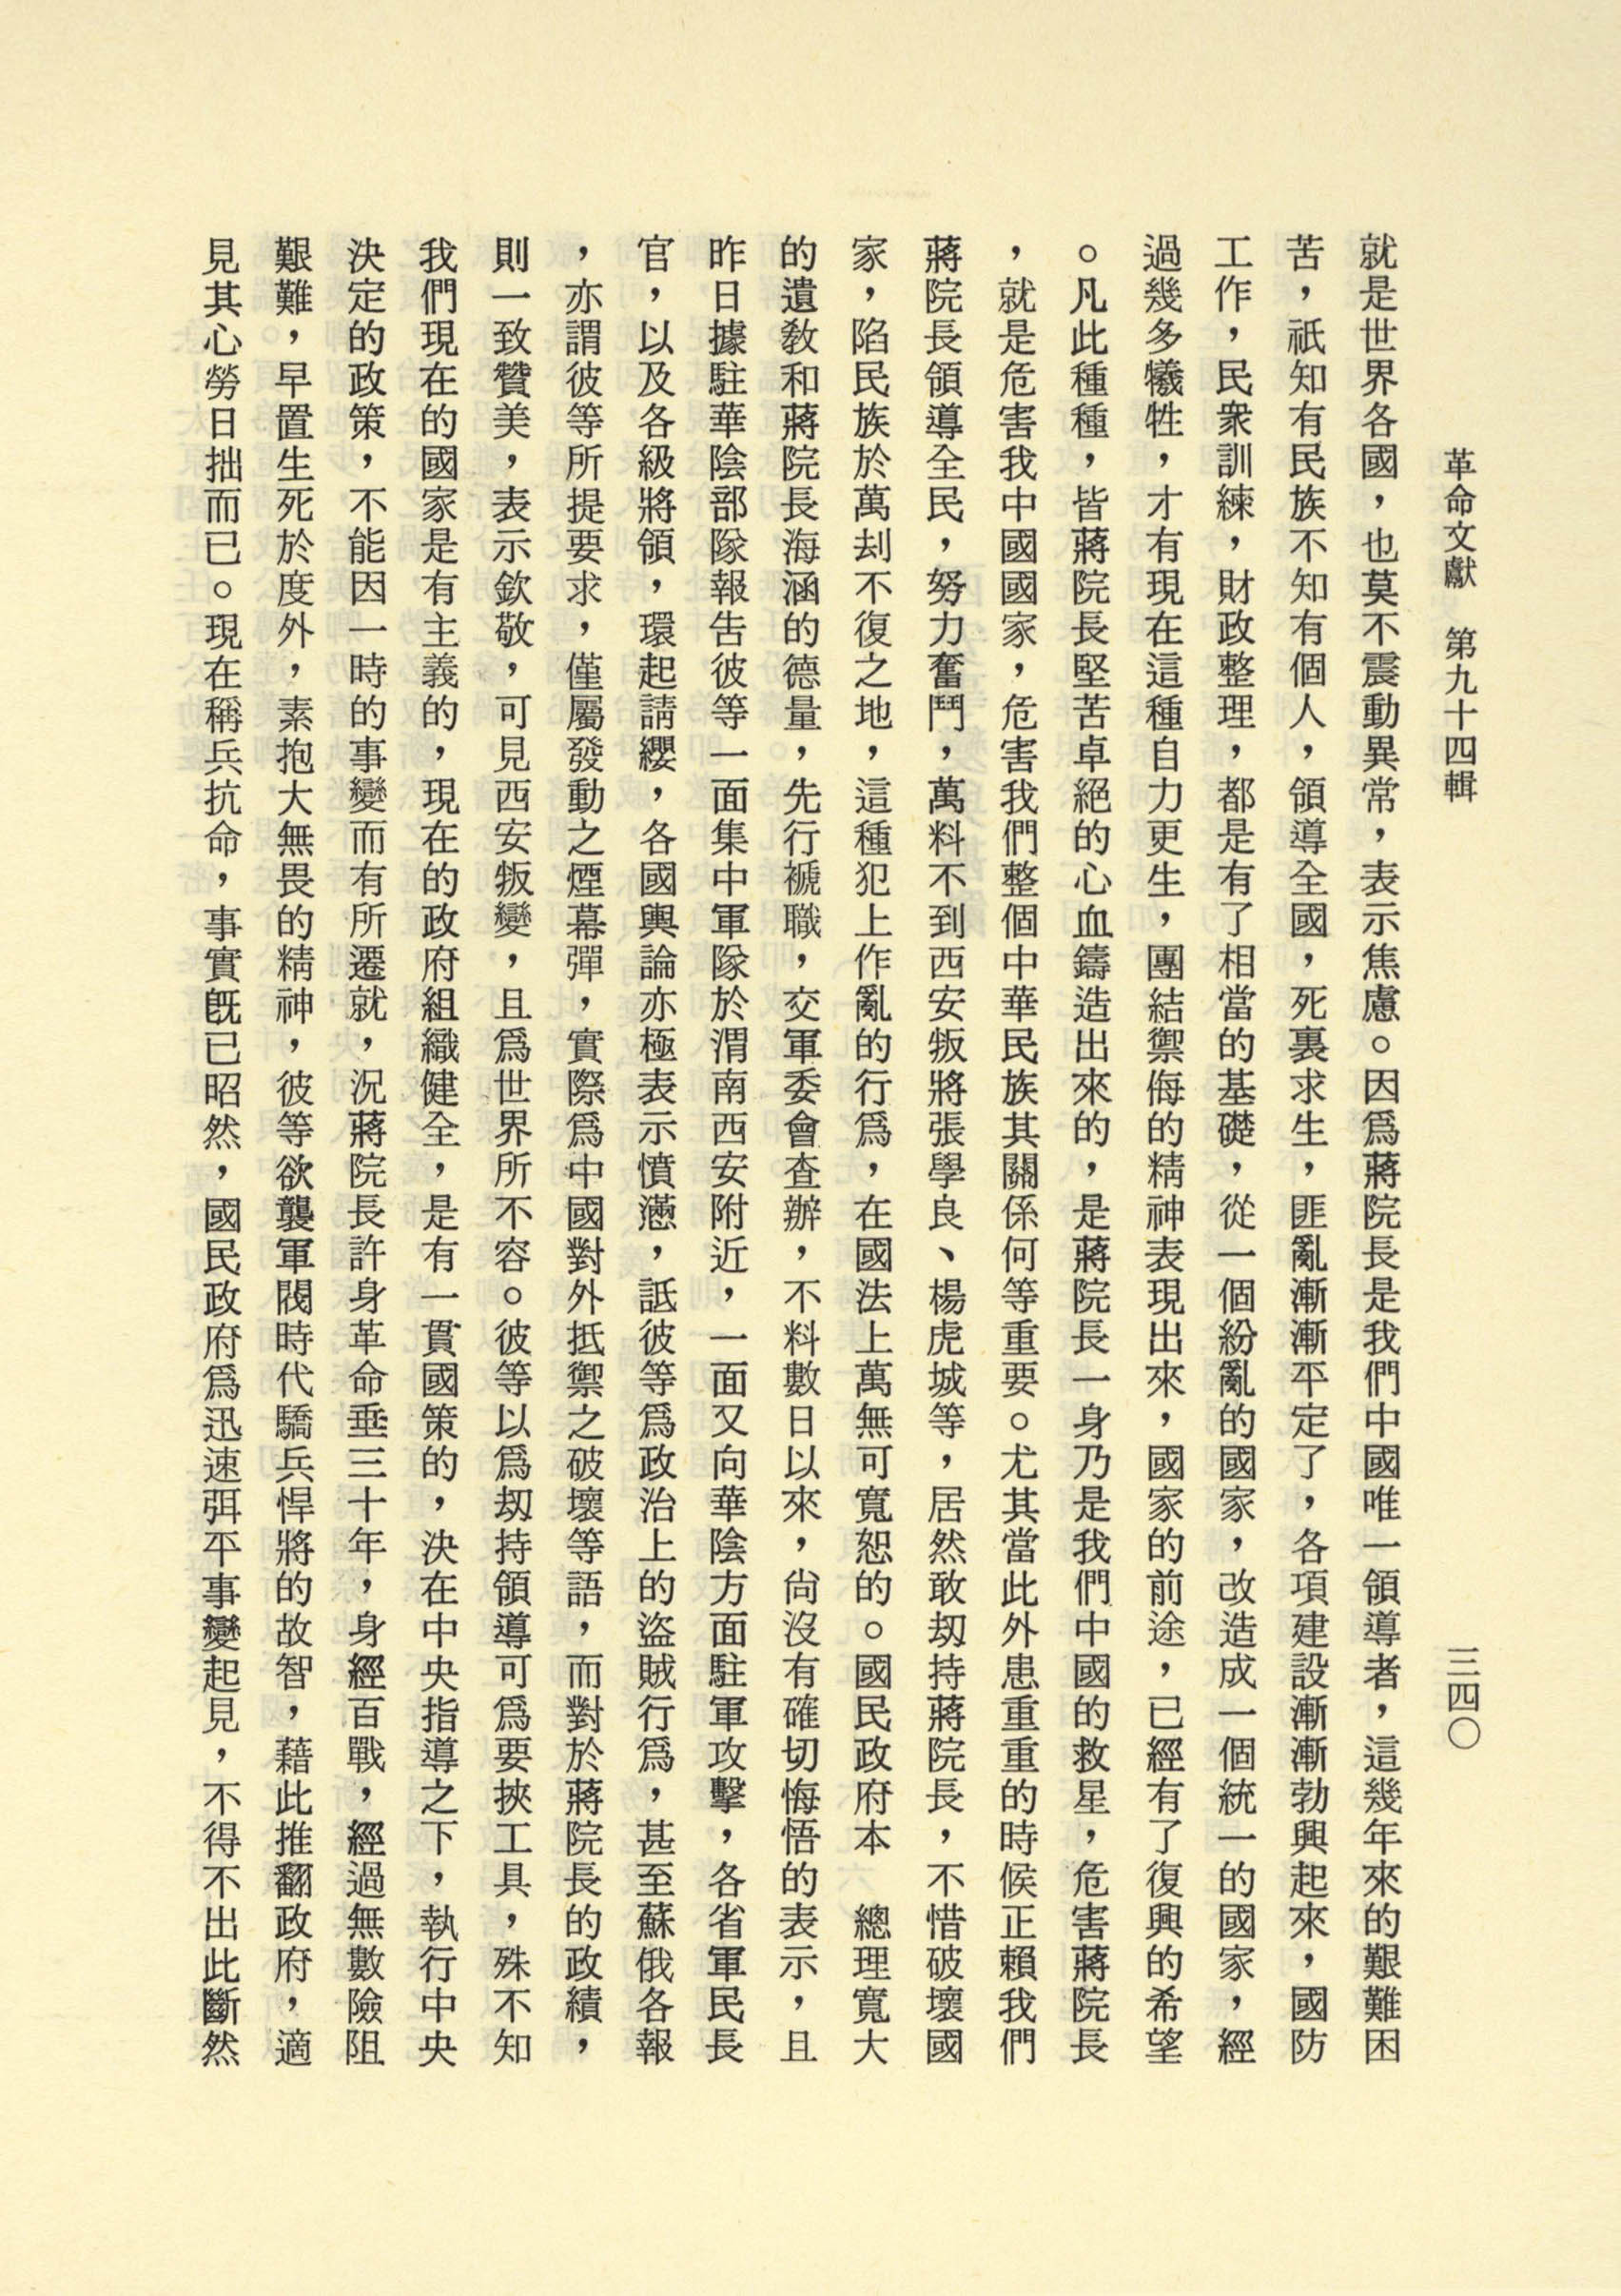 革命文獻　第九十四輯
三四〇
就是世界各國，也莫不震動異常，表示焦慮。因爲蔣院長是我們中國唯一領導者，這幾年來的艱難困
苦，祇知有民族不知有個人，領導全國，死裏求生，匪亂漸漸平定了，各項建設漸漸勃興起來，國防
工作，民衆訓練，財政整理，都是有了相當的基礎，從一個紛亂的國家，改造成一個統一的國家，經
過幾多犧牲，才有現在這種自力更生，團結禦侮的精神表現出來，國家的前途，已經有了復興的希望
。凡此種種，皆蔣院長堅苦卓絕的心血鑄造出來的，是蔣院長一身乃是我們中國的救星，危害蔣院長
，就是危害我中國國家，危害我們整個中華民族其關係何等重要。尤其當此外患重重的時候正賴我們
蔣院長領導全民，努力奮鬥，萬料不到西安叛將張學良、楊虎城等，居然敢刼持蔣院長，不惜破壞國
家，陷民族於萬刦不復之地，這種犯上作亂的行爲，在國法上萬無可寬恕的。國民政府本　總理寬大
的遺敎和蔣院長海涵的德量，先行褫職，交軍委會查辦，不料數日以來，尙沒有確切悔悟的表示，且
昨日據駐華陰部隊報告彼等一面集中軍隊於渭南西安附近，一面又向華陰方面駐軍攻擊，各省軍民長
官，以及各級將領，環起請纓，各國輿論亦極表示憤懣，詆彼等爲政治上的盜賊行爲，甚至蘇俄各報
，亦謂彼等所提要求，僅屬發動之煙幕彈，實際爲中國對外抵禦之破壞等語，而對於蔣院長的政績，
則一致贊美，表示欽敬，可見西安叛變，且爲世界所不容。彼等以爲刼持領導可爲要挾工具，殊不知
我們現在的國家是有主義的，現在的政府組織健全，是有一貫國策的，決在中央指導之下，執行中央
決定的政策，不能因一時的事變而有所遷就，況蔣院長許身革命垂三十年，身經百戰，經過無數險阻
艱難，早置生死於度外，素抱大無畏的精神，彼等欲襲軍閥時代驕兵悍將的故智，藉此推翻政府，適
見其心勞日拙而已。現在稱兵抗命，事實旣已昭然，國民政府爲迅速弭平事變起見，不得不出此斷然